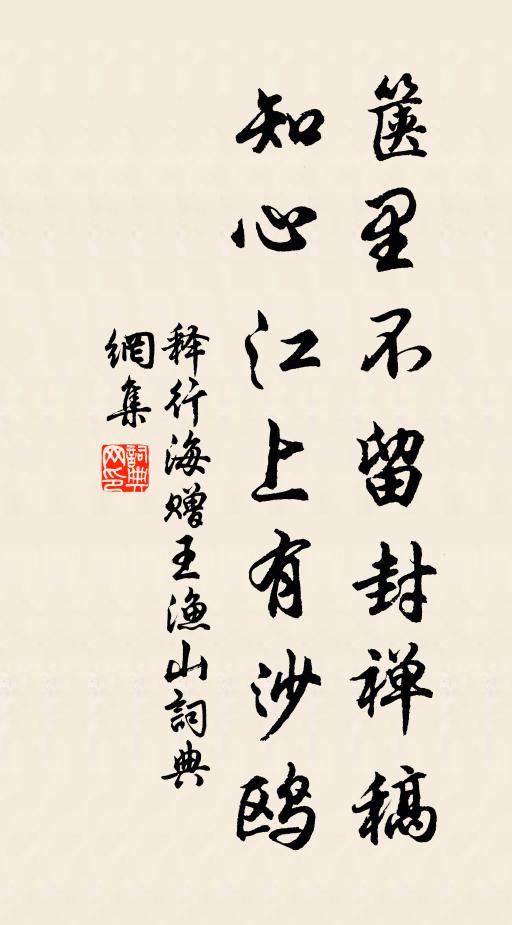 篋里不留封禅稿
知心江上有沙鸥
释行海赠王渔山詞典
網集
詞典
网印